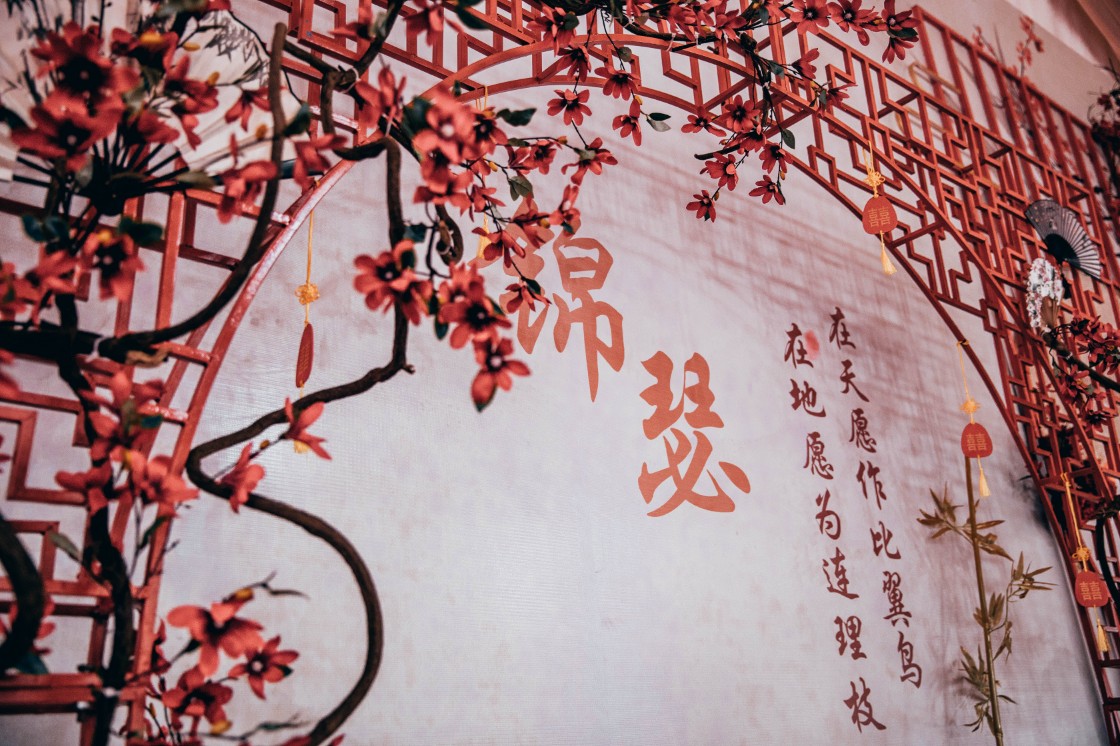 锦瑟
在天愿作比翼鸟
在地愿为连理枝
囍
囍
囍